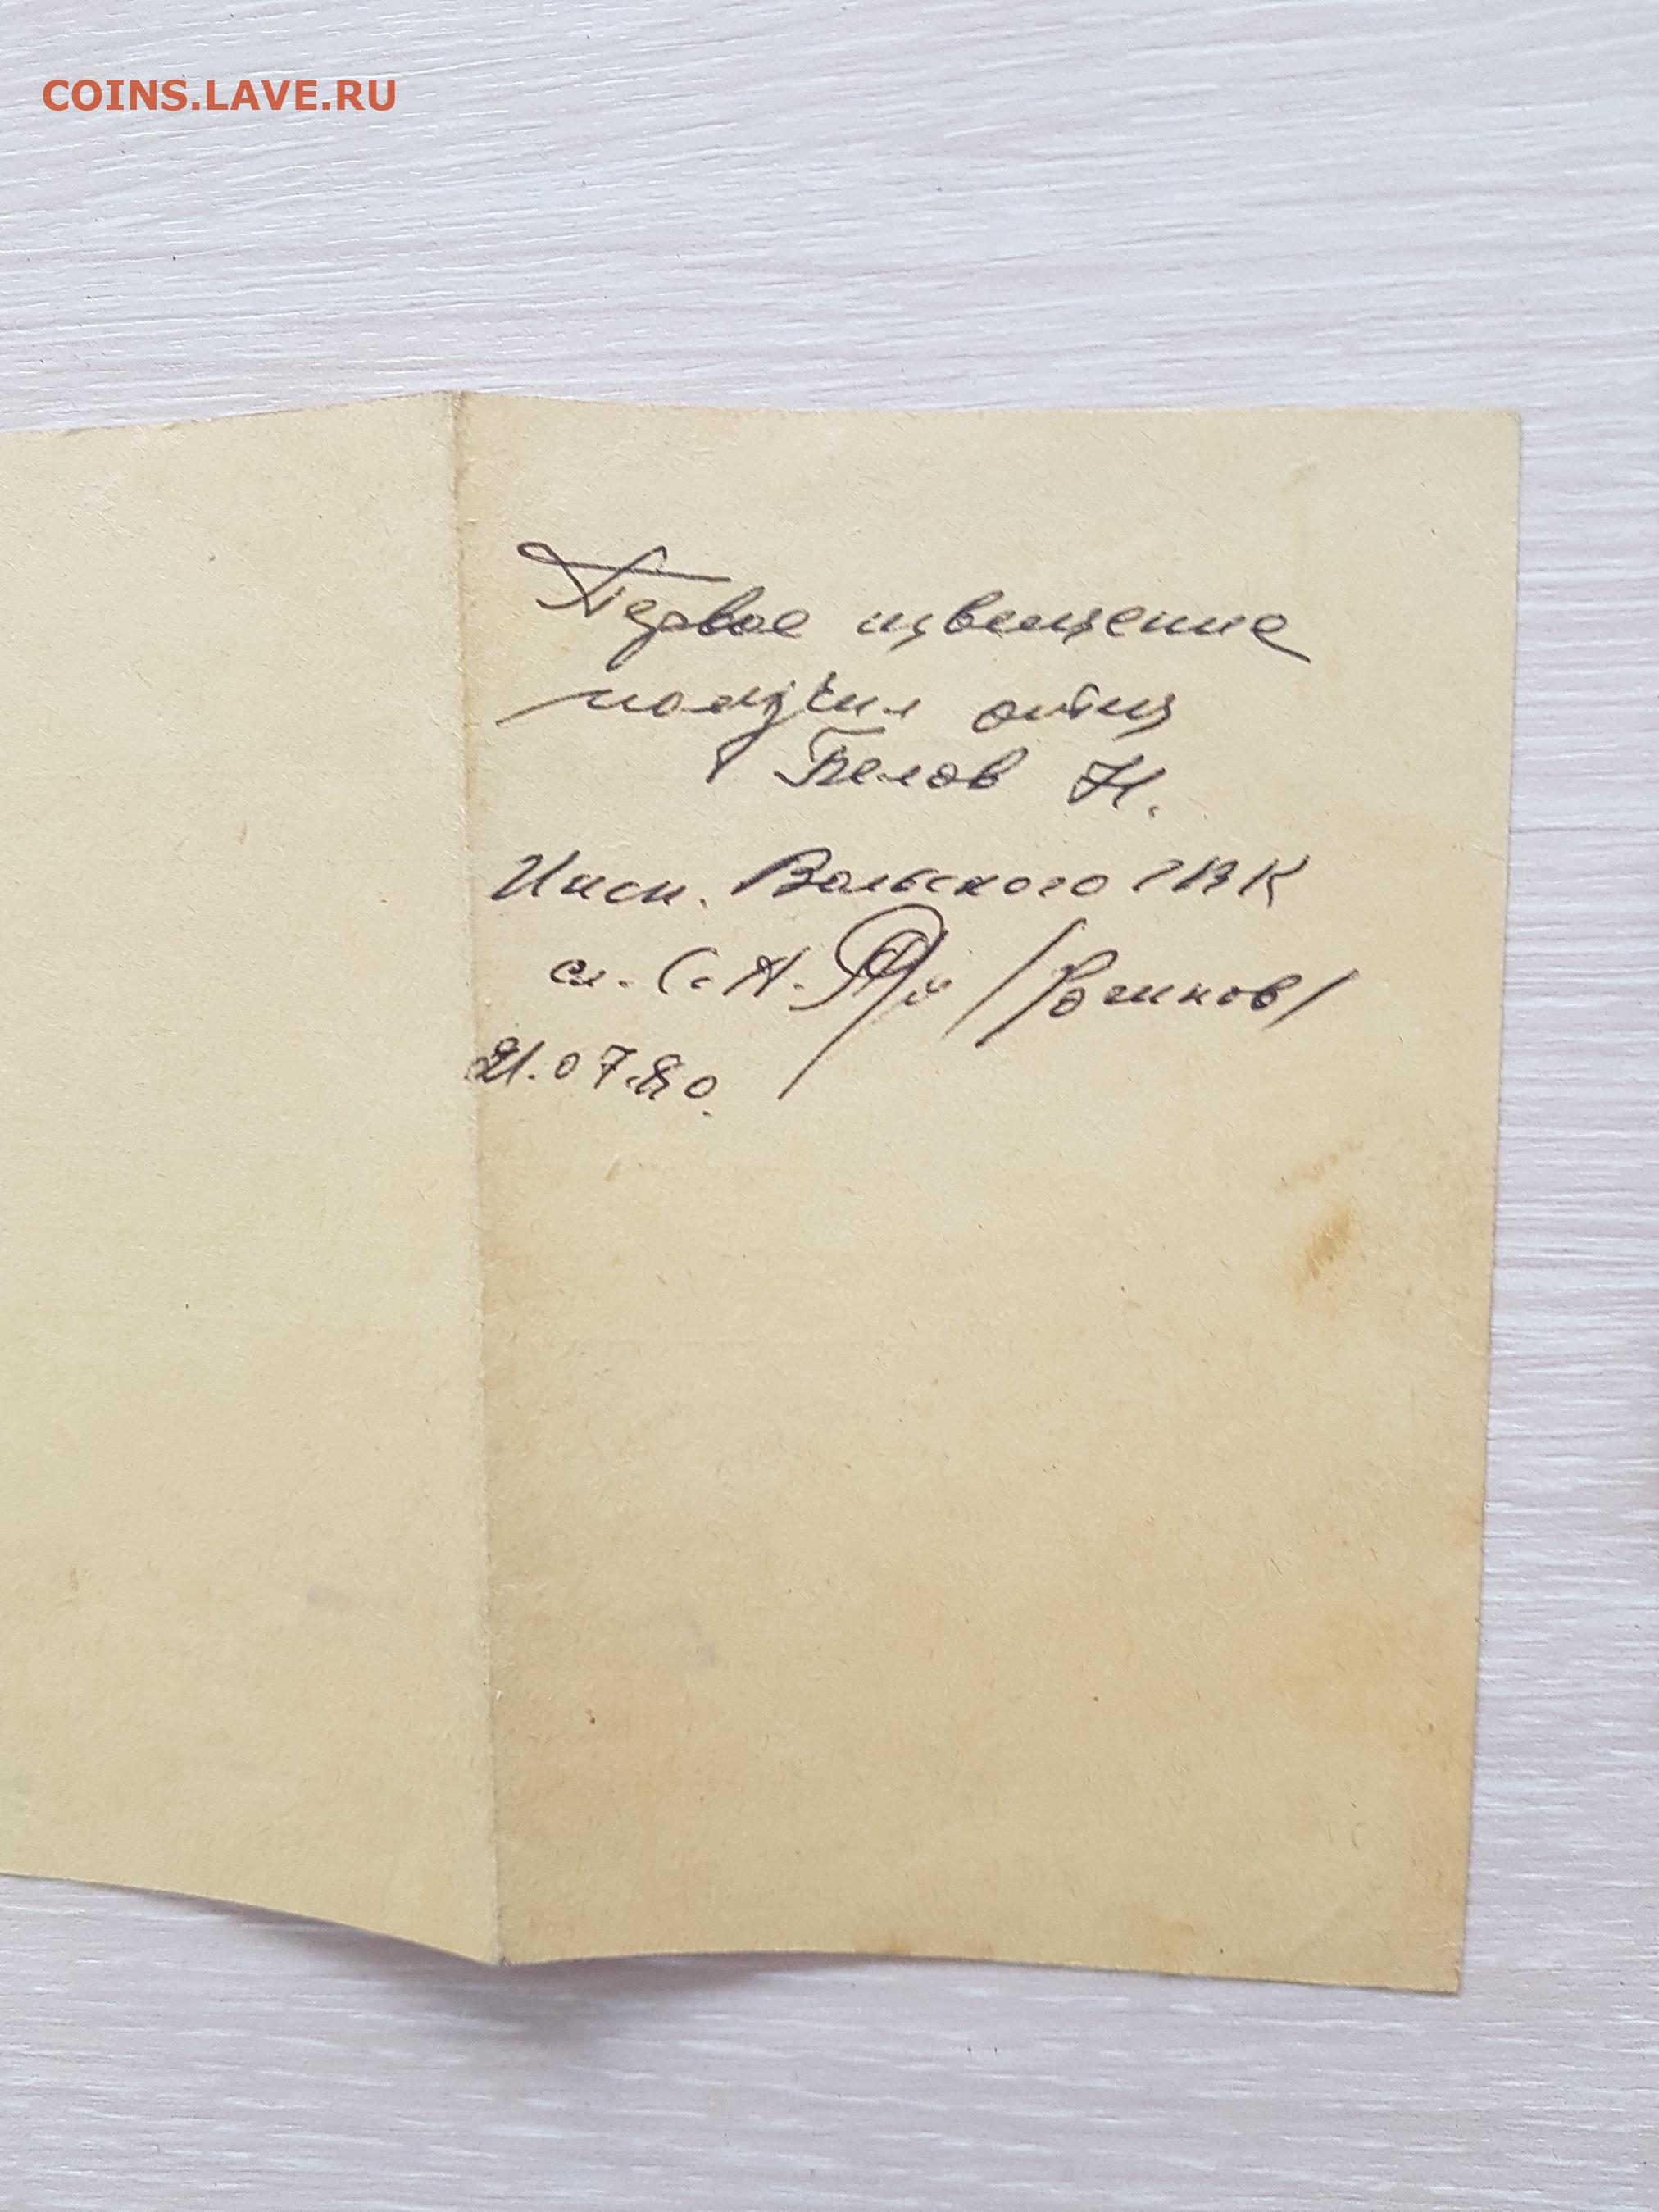 COINS.LAVE.RU
Первое извещение
получил отец
Белов Н.
Инсп. Вольского ГВК
с-т С.А.
21.07.80.